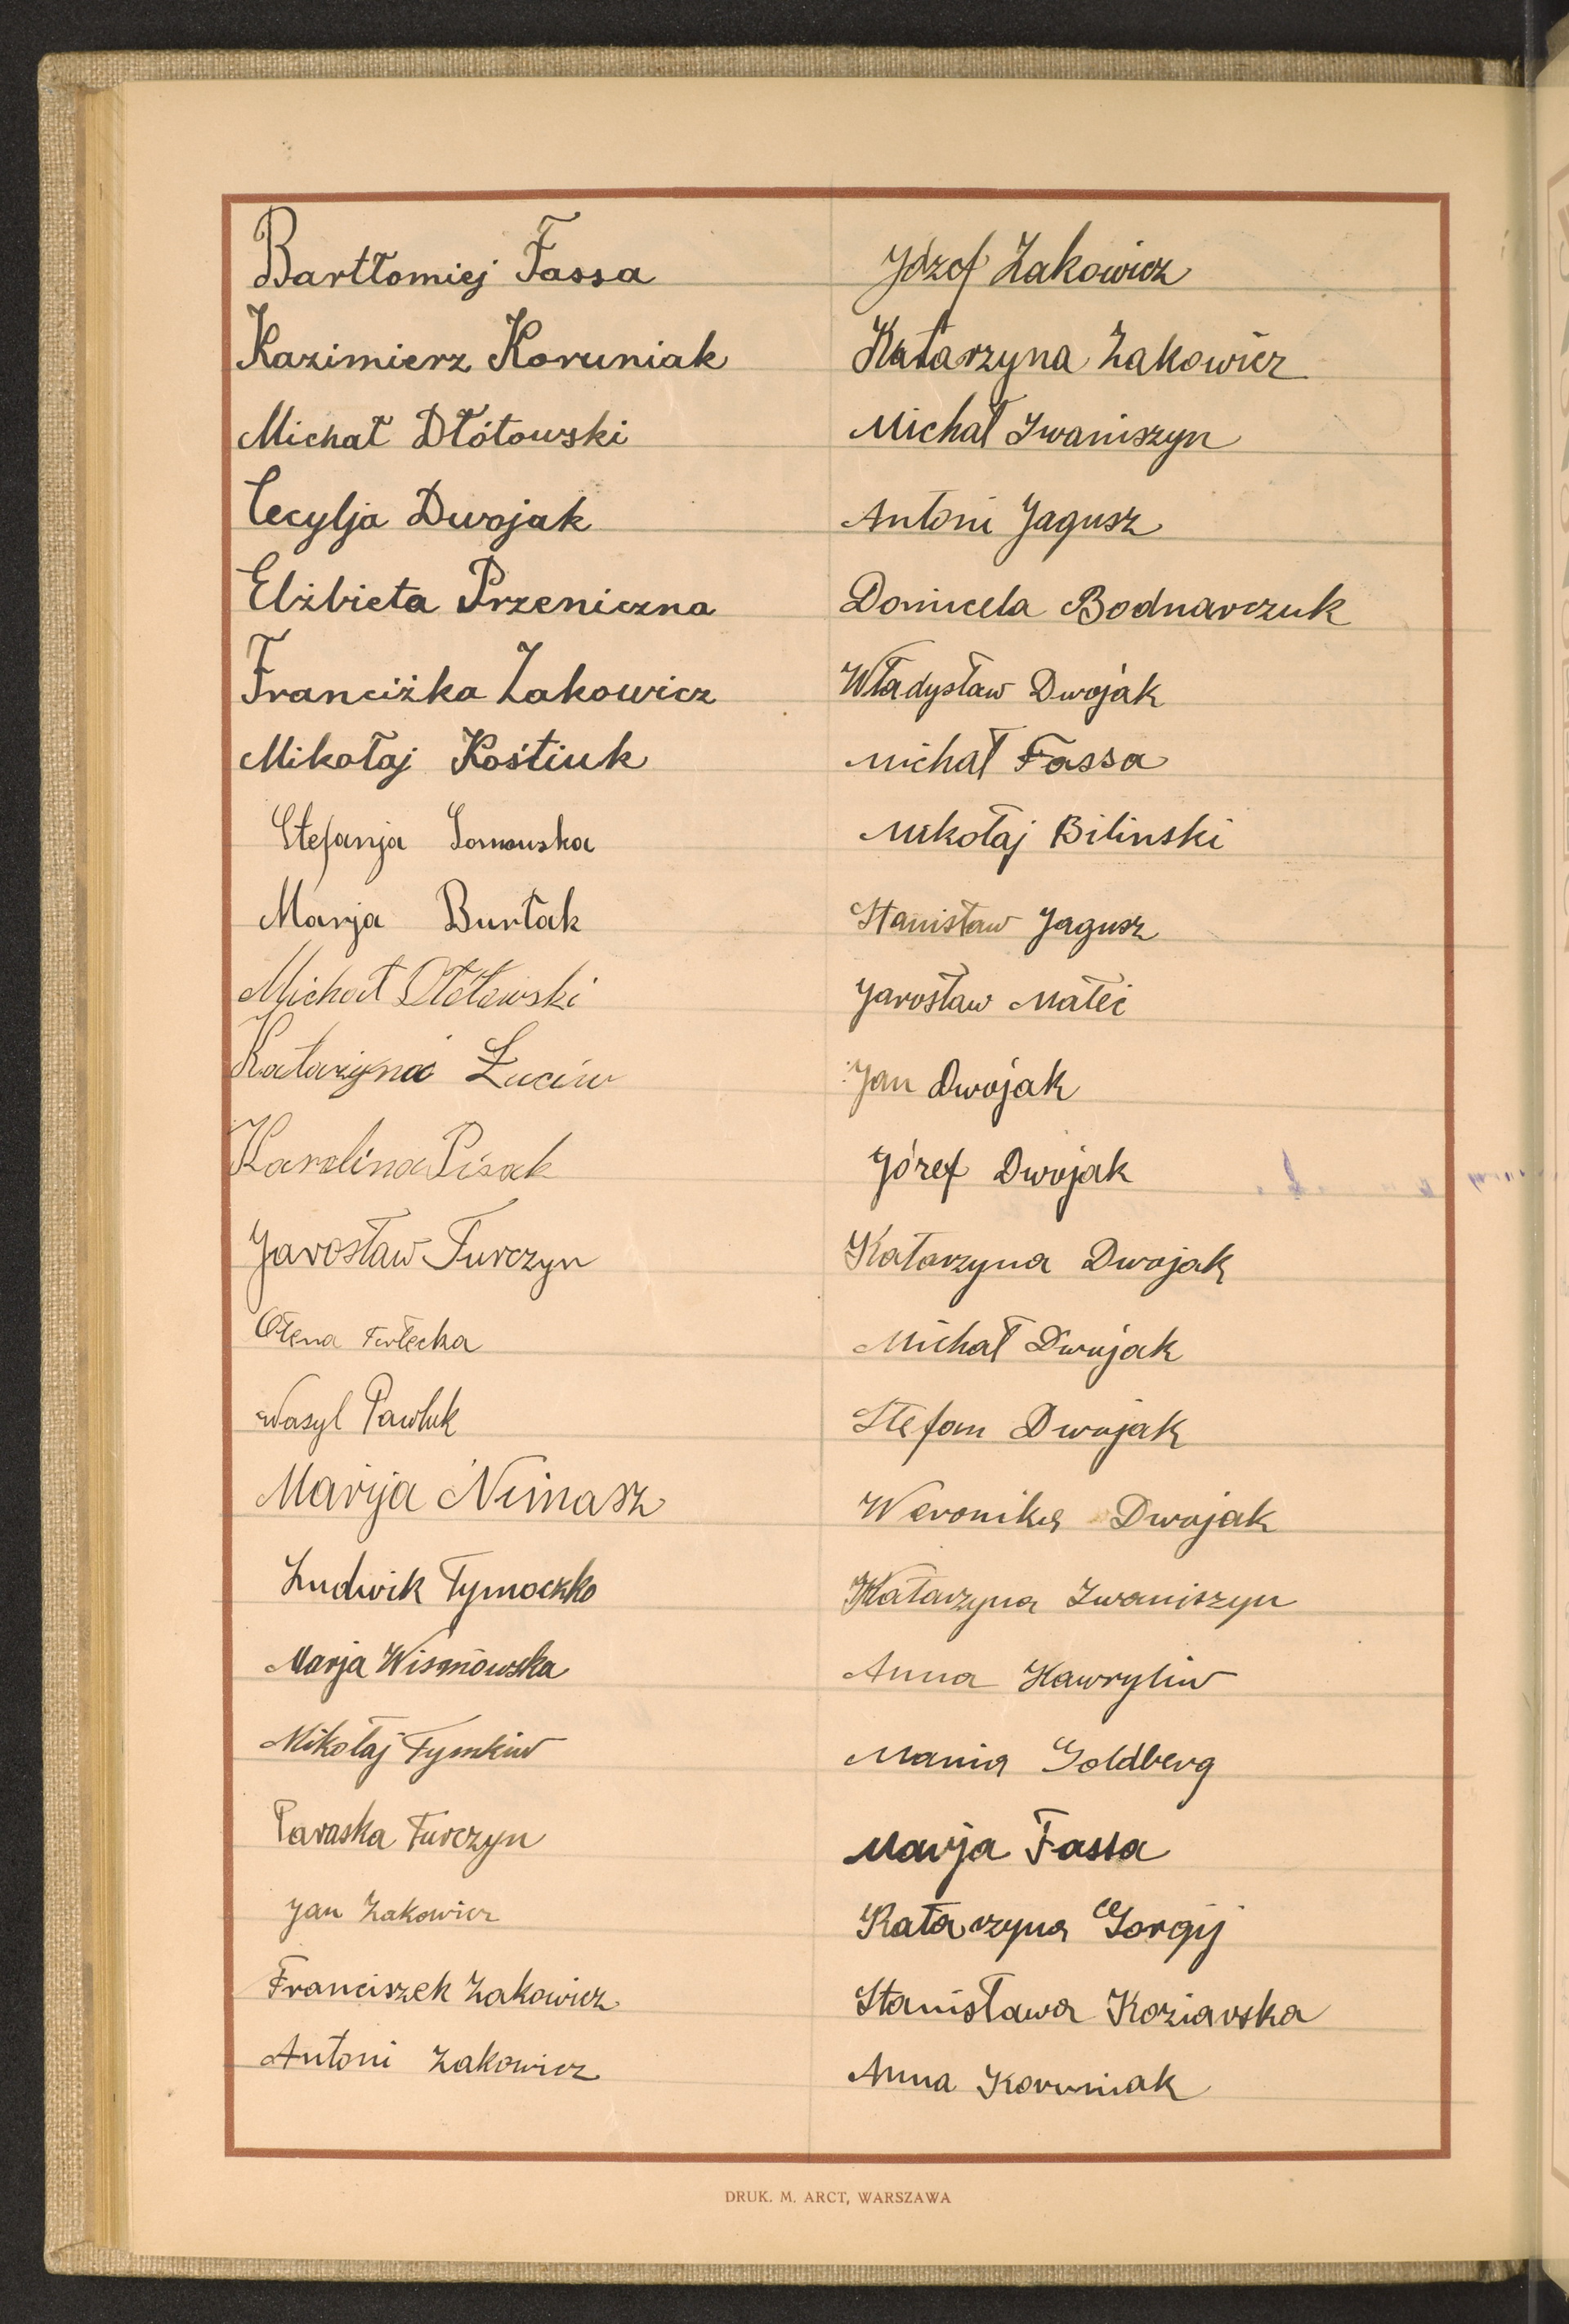 Bartłomiej Fassa
Kazimierz Koruniak
Michał Dłótowski
Cecylja Dwojak
Elżbieta Przeniczna
Franciżka Zakowicz
Mikołaj Kostiuk
Stefanja
Marja Burłak
Michał Dłótowski
Katarzyna Łuciw
Karolina Pisak
Jarosław Turczyn
Ołena Turłecka
Wasyl Pawluk
Marija Nimasz
Ludwik Tymoczko
Marja Wismowska
Mikołaj Tymkiw
Paraska Turczyn
Jan Zakowicz
Franciszek Zakowicz
Antoni Zakowicz
Józef Zakowicz
Katarzyna Zakowicz
Michał Iwaniszyn
Antoni Jagusz
Domicela Bodnarczuk
Władysław Dwojak
Michał Fassa
Mikołaj Bilinski
Stanisław Jagusz
Jarosław Matei
Jan Dwojak
Józef Dwojak
Katarzyna Dwojak
Michał Dwojak
Stefan Dwojak
Weronika Dwojak
Katarzyna Iwaniszyn
Anna Hawryliw
Mania Goldberg
Marja Fassa
Katarzyna Gorgij
Stanisława Koziarska
Anna Koruniak
DRUK. M. ARCT, WARSZAWA